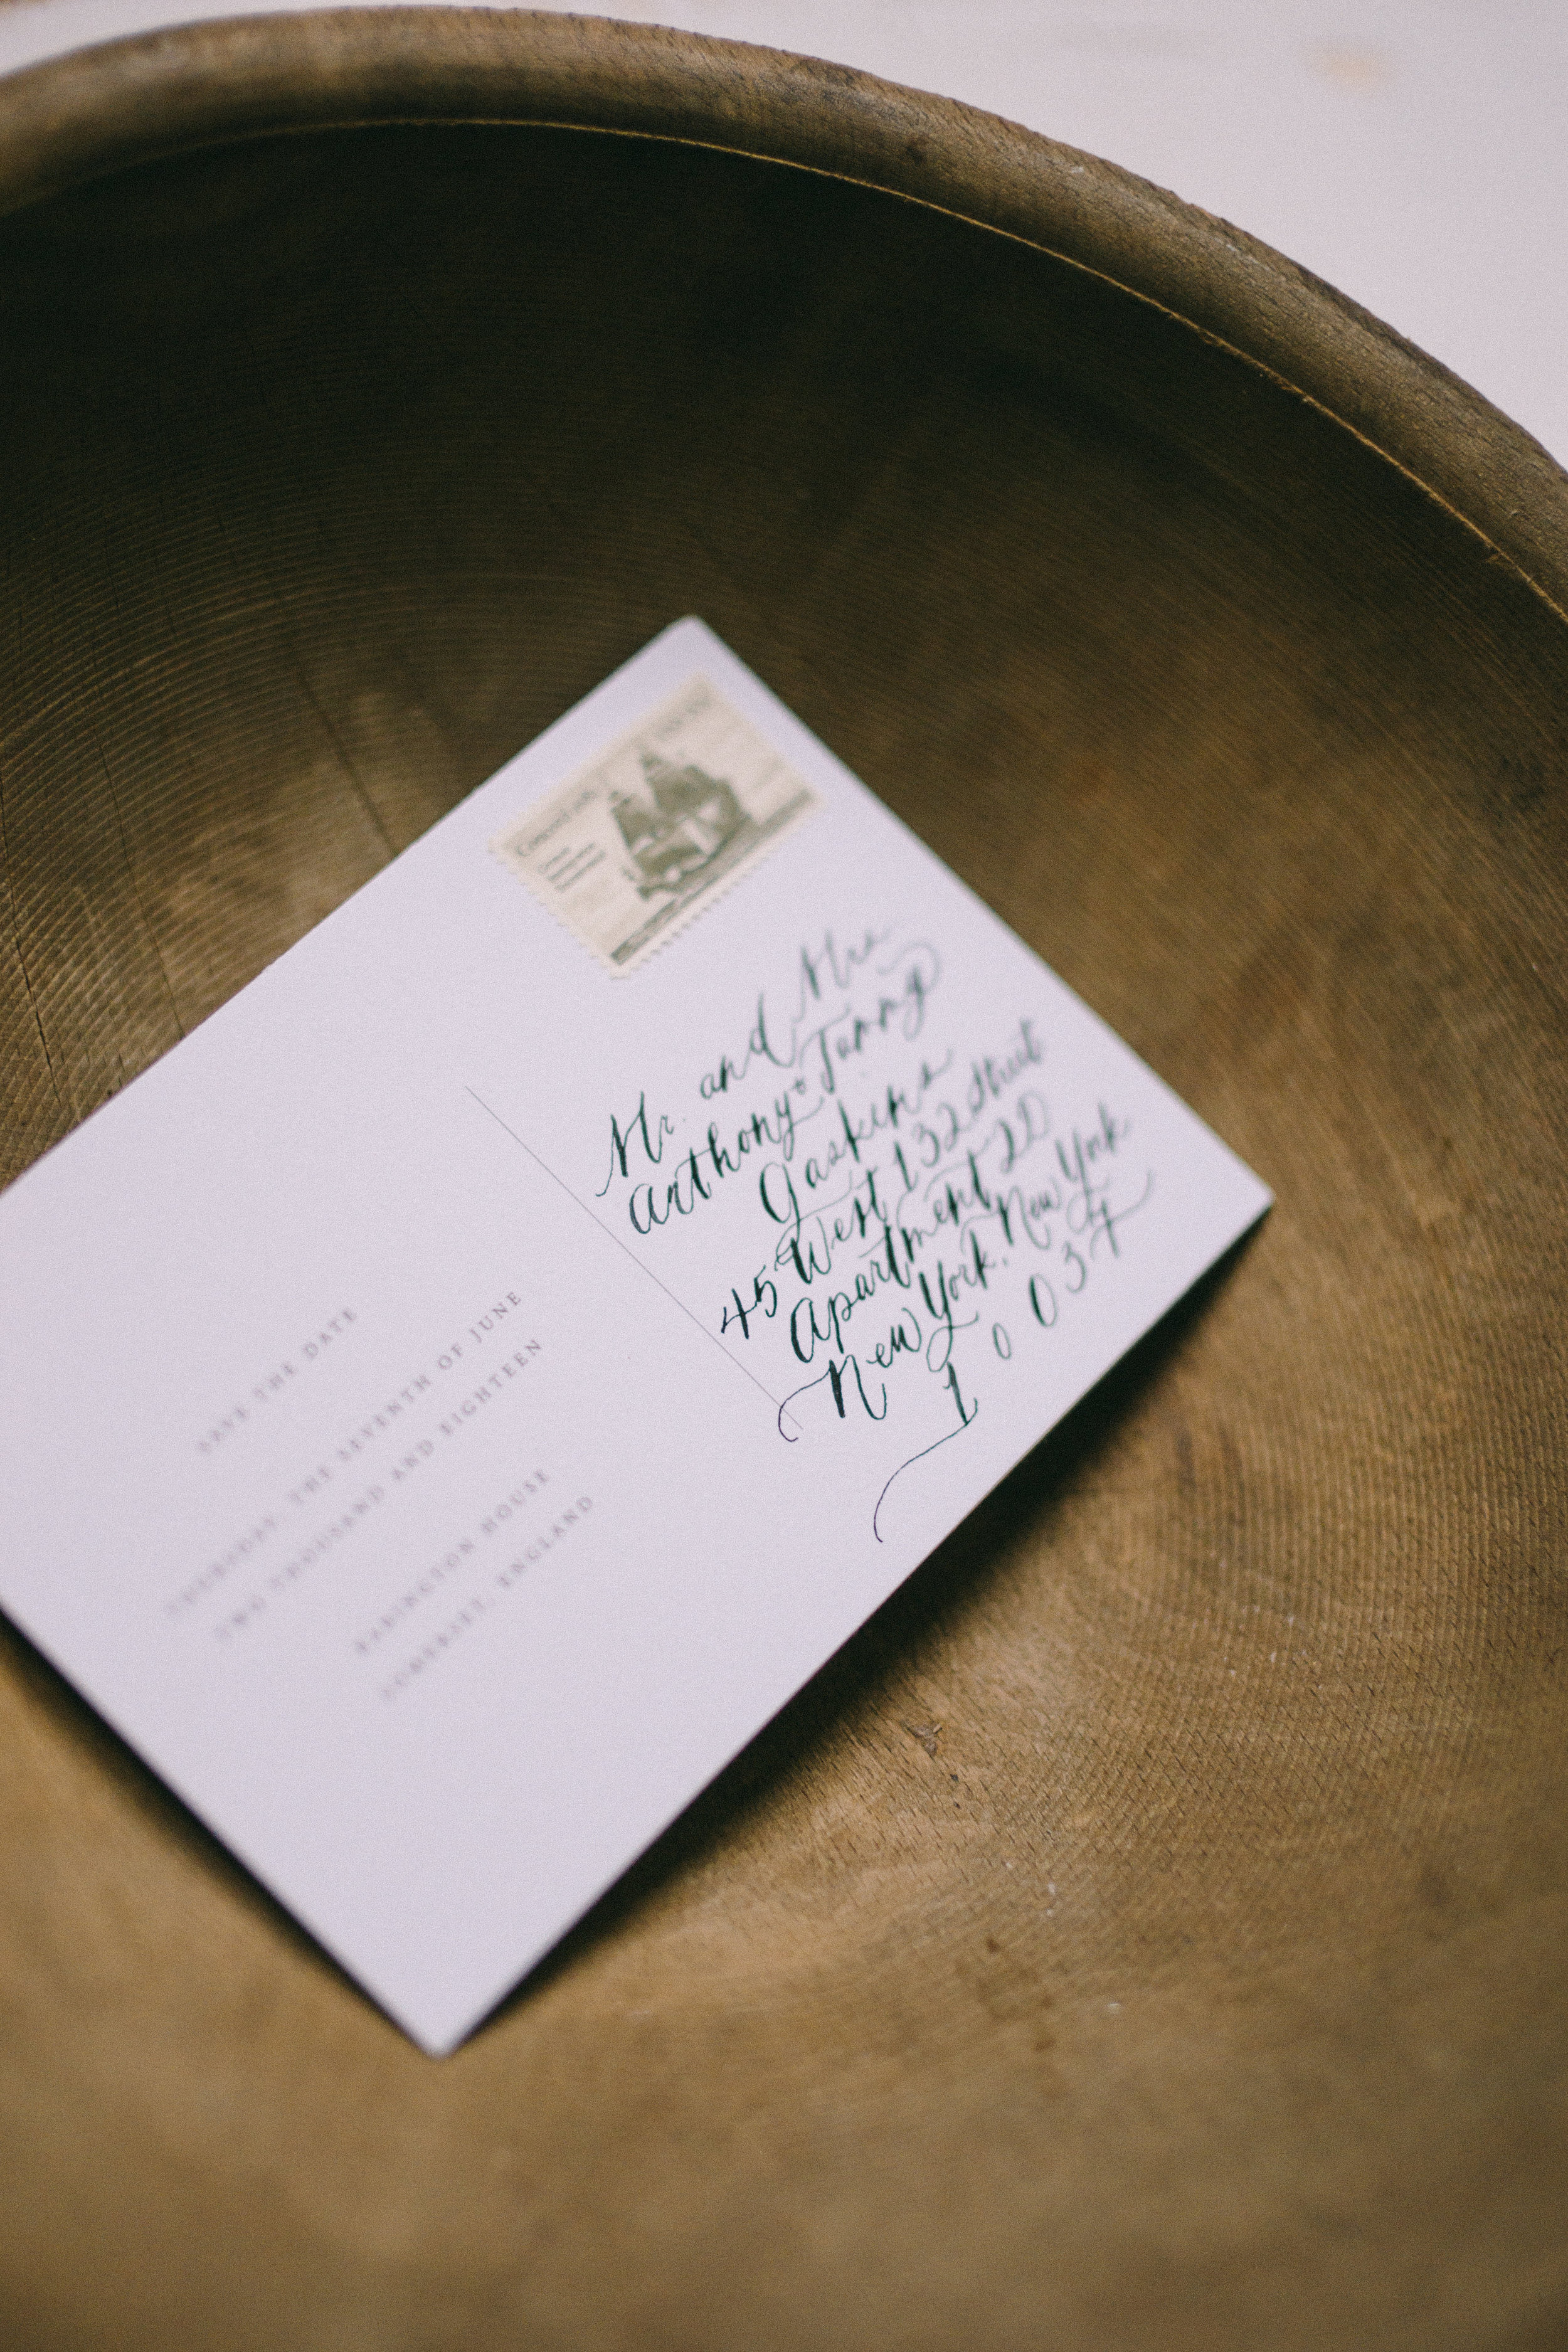 Concord 1683
German
Immigration
Tricentennial
Mr. and Mrs
Anthony + Jonng
Gaskins
45 West 132 Street
Apartment 2D
New York, New York
10037
SAVE THE DATE
THURSDAY, THE SEVENTH OF JUNE
TWO THOUSAND AND EIGHTEEN
BABINGTON HOUSE
SOMERSET, ENGLAND